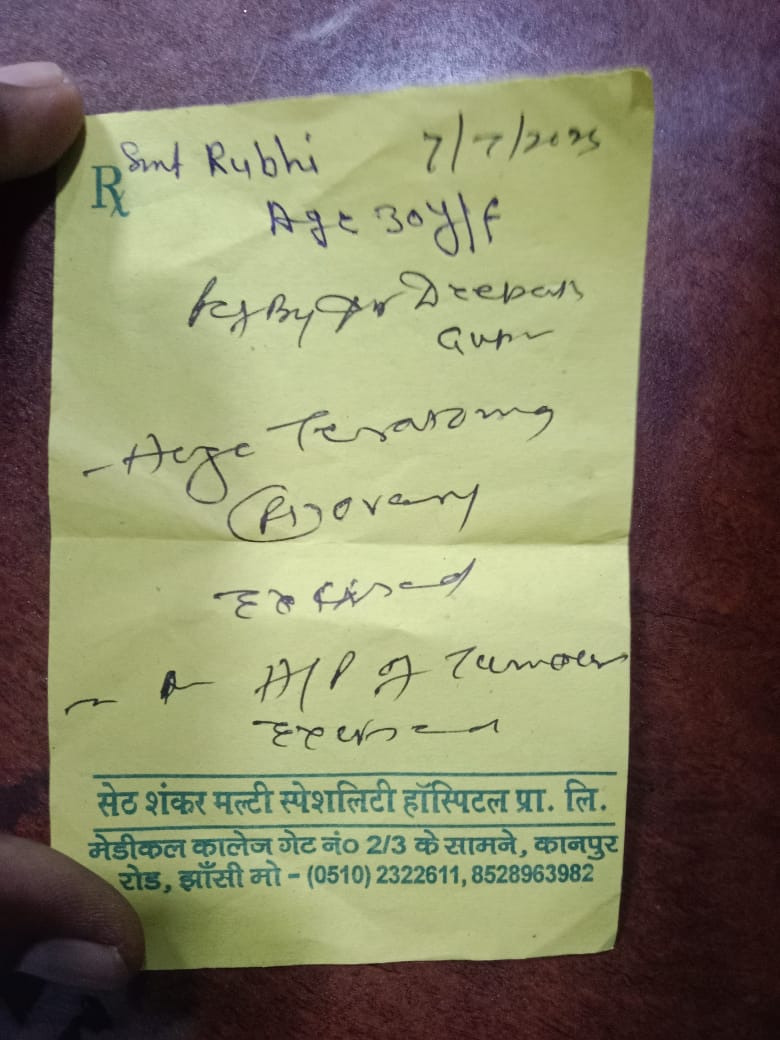 Rx Smt Rubhi 7/7/2025
Age 30Y/F
Ref By Dr Deepak
- Huge Teratoma
(Rt) ovary
Excised
- H/P of Tumour
Excised
सेठ शंकर मल्टी स्पेशलिटी हॉस्पिटल प्रा. लि.
मेडीकल कालेज गेट नं० 2/3 के सामने, कानपुर
रोड, झाँसी मो - (0510) 2322611, 8528963982